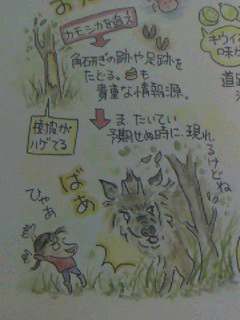 カモシカを追え
角石器ぎの跡や足跡を
たどる。も
貴重な情報源。
樹皮が
ハゲてる
ま、たいてい
予期せぬ時に、現れ
るけどね
ばあ
ひゃあ
キウイ
味か
道